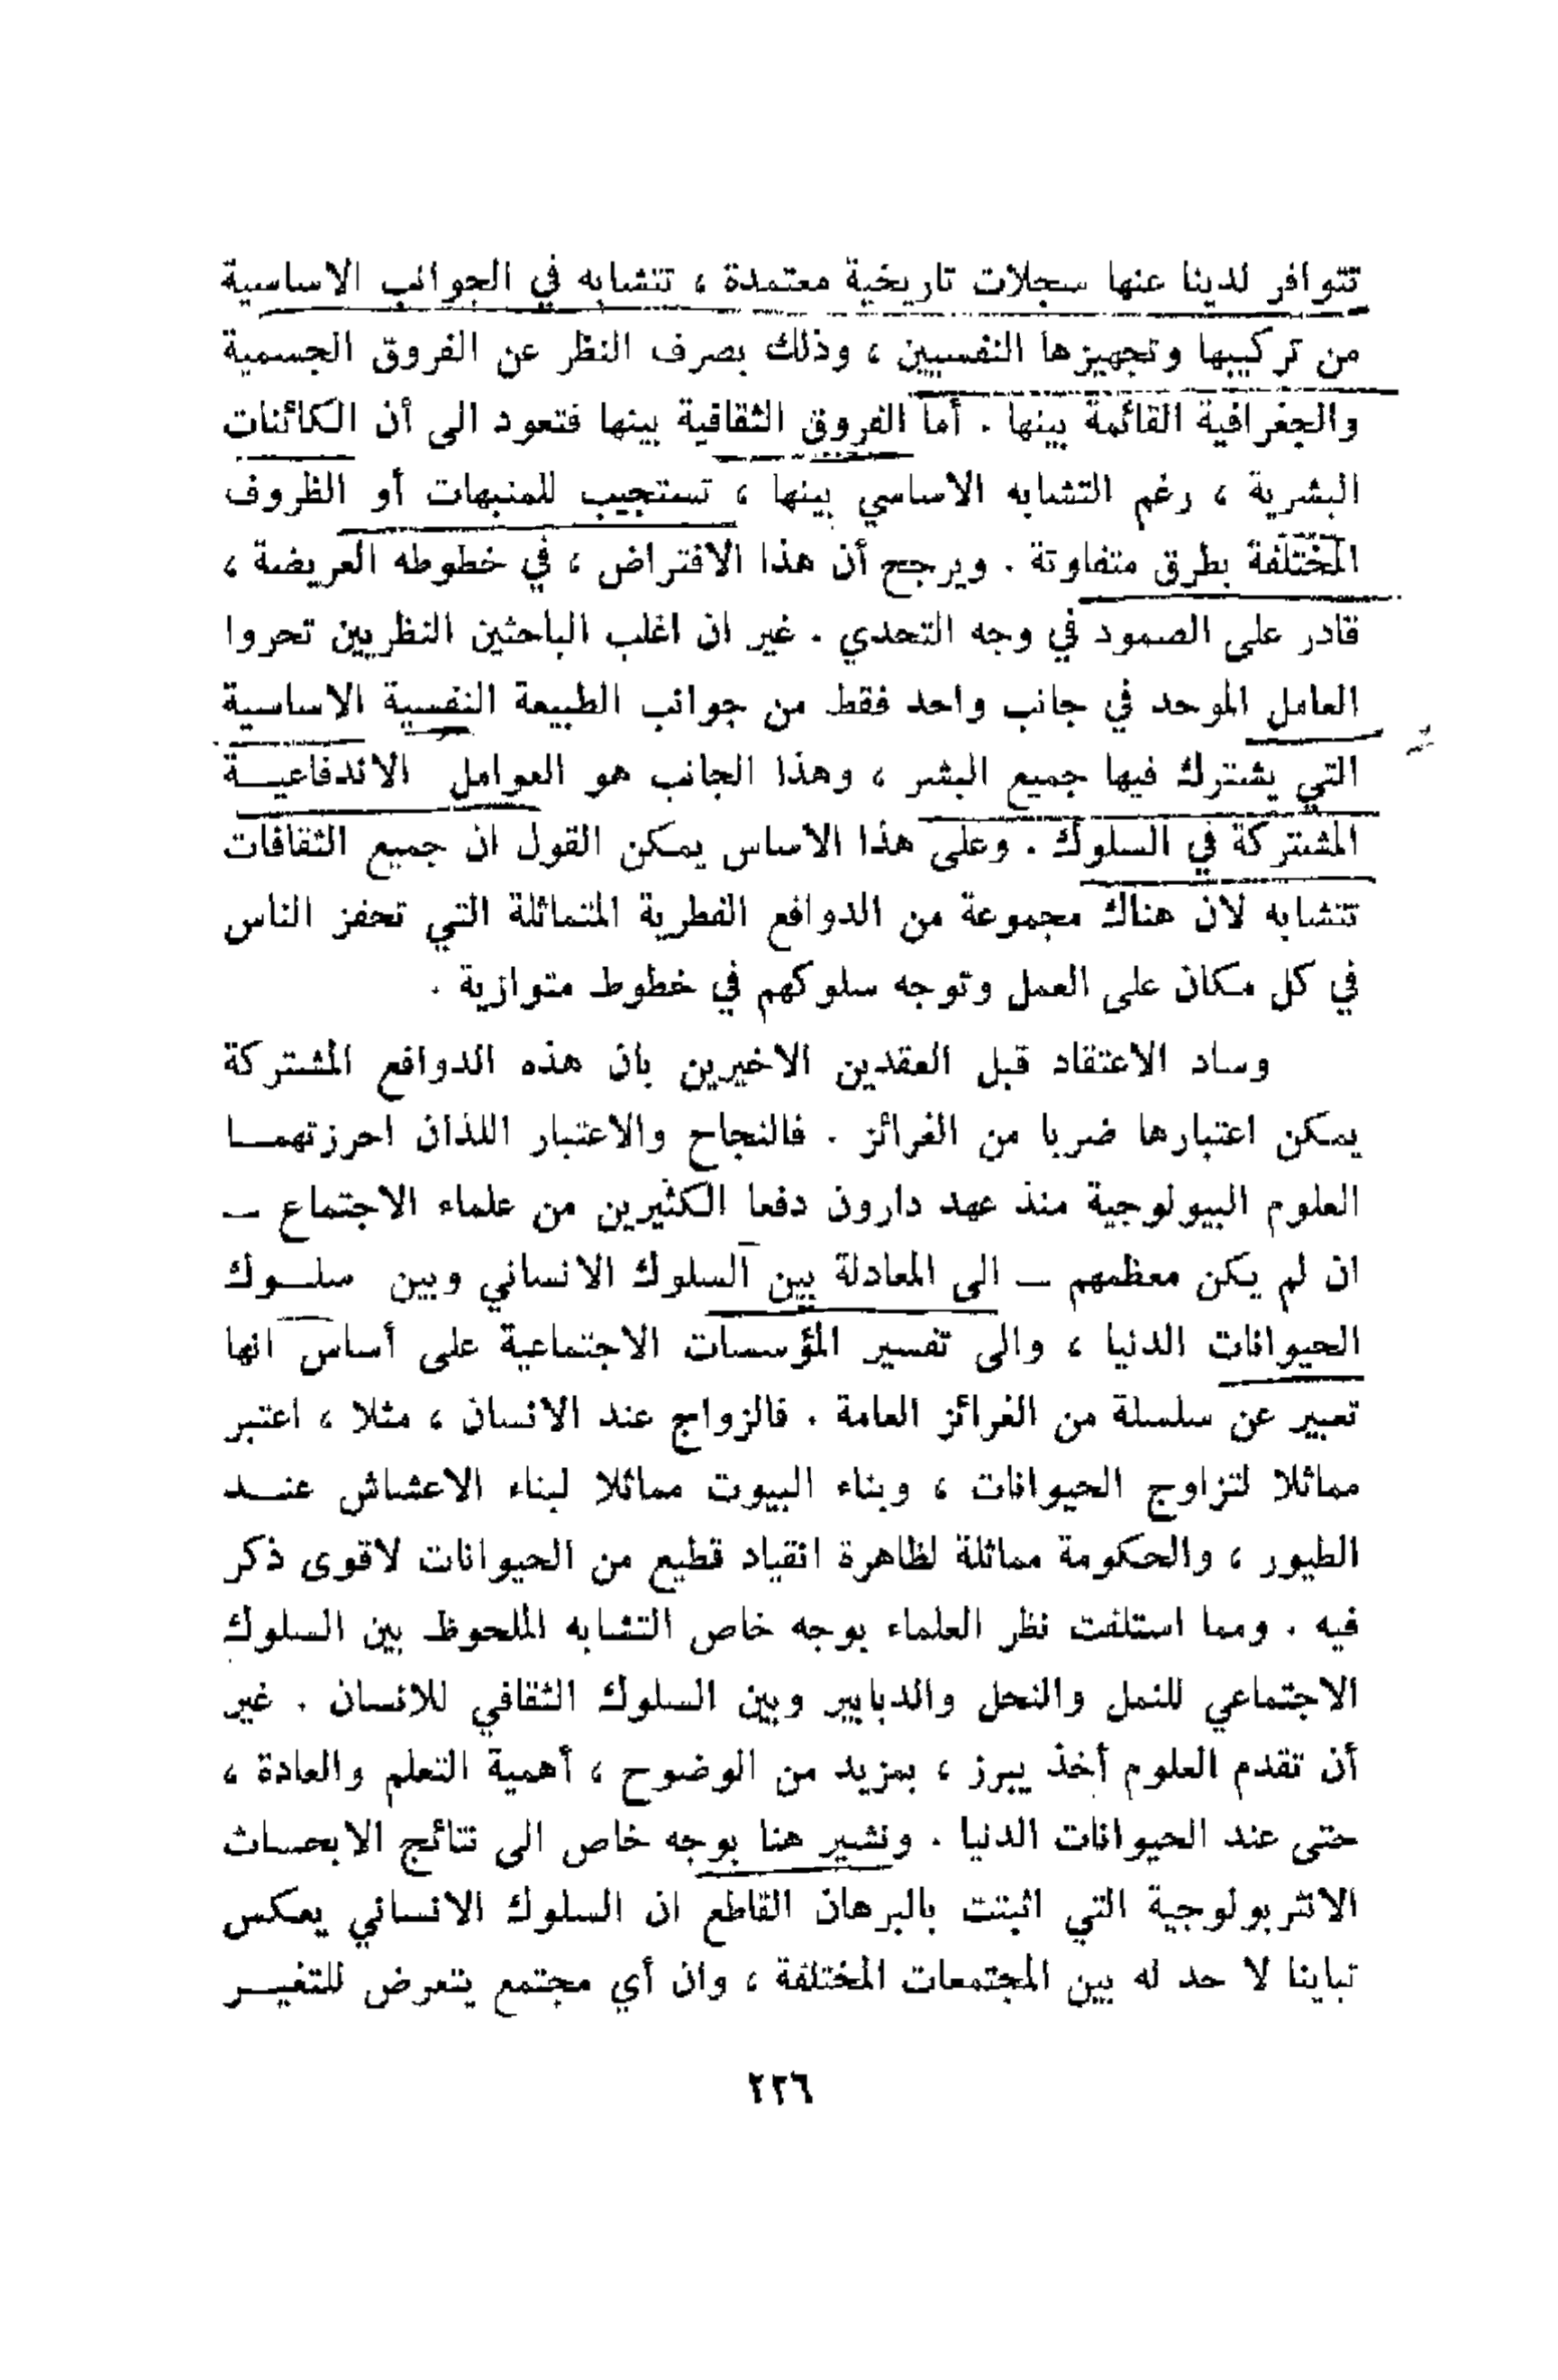 تتوافر لدينا عنها سجلات تاريخية معتمدة ، تتشابه في الجوانب الاساسية
من تركيبها وتجهيزها النفسيين ، وذلك بصرف النظر عن الفروق الجسمية
والجغرافية القائمة بينها . أما الفروق الثقافية بينها فتعود الى أن الكائنات
البشرية ، رغم التشابه الاساسي بينها ، تستجيب للمنبهات أو الظروف
المختلفة بطرق متفاوتة . ويرجح أن هذا الافتراض ، في خطوطه العريضة ،
قادر على الصمود في وجه التحدي . غير ان اغلب الباحثين النظريين تحروا
العامل الموحد في جانب واحد فقط من جوانب الطبيعة النفسية الاساسية
التي يشترك فيها جميع البشر ، وهذا الجانب هو العوامل الاندفاعيــة
المشتركة في السلوك . وعلى هذا الاساس يمكن القول ان جميع الثقافات
تتشابه لان هناك مجموعة من الدوافع الفطرية المتماثلة التي تحفز الناس
في كل مكان على العمل وتوجه سلوكهم في خطوط متوازية .
وساد الاعتقاد قبل العقدين الاخيرين بان هذه الدوافع المشتركة
يمكن اعتبارها ضربا من الغرائز . فالنجاح والاعتبار اللذان احرزتهمــا
العلوم البيولوجية منذ عهد دارون دفعا الكثيرين من علماء الاجتماع —
ان لم يكن معظمهم — الى المعادلة بين السلوك الانساني وبين سلــوك
الحيوانات الدنيا ، والى تفسير المؤسسات الاجتماعية على أساس انها
تعبير عن سلسلة من الغرائز العامة . فالزواج عند الانسان ، مثلا ، اعتبر
مماثلا لتزاوج الحيوانات ، وبناء البيوت مماثلا لبناء الاعشاش عنــد
الطيور ، والحكومة مماثلة لظاهرة انقياد قطيع من الحيوانات لاقوى ذكر
فيه . ومما استلفت نظر العلماء بوجه خاص التشابه الملحوظ بين السلوك
الاجتماعي للنمل والنحل والدبابير وبين السلوك الثقافي للانسان . غير
أن تقدم العلوم أخذ يبرز ، بمزيد من الوضوح ، أهمية التعلم والعادة ،
حتى عند الحيوانات الدنيا . ونشير هنا بوجه خاص الى نتائج الابحــاث
الانثربولوجية التي اثبتت بالبرهان القاطع ان السلوك الانساني يعكس
تباينا لا حد له بين المجتمعات المختلفة ، وان أي مجتمع يتعرض للتغيــر
٢٢٦